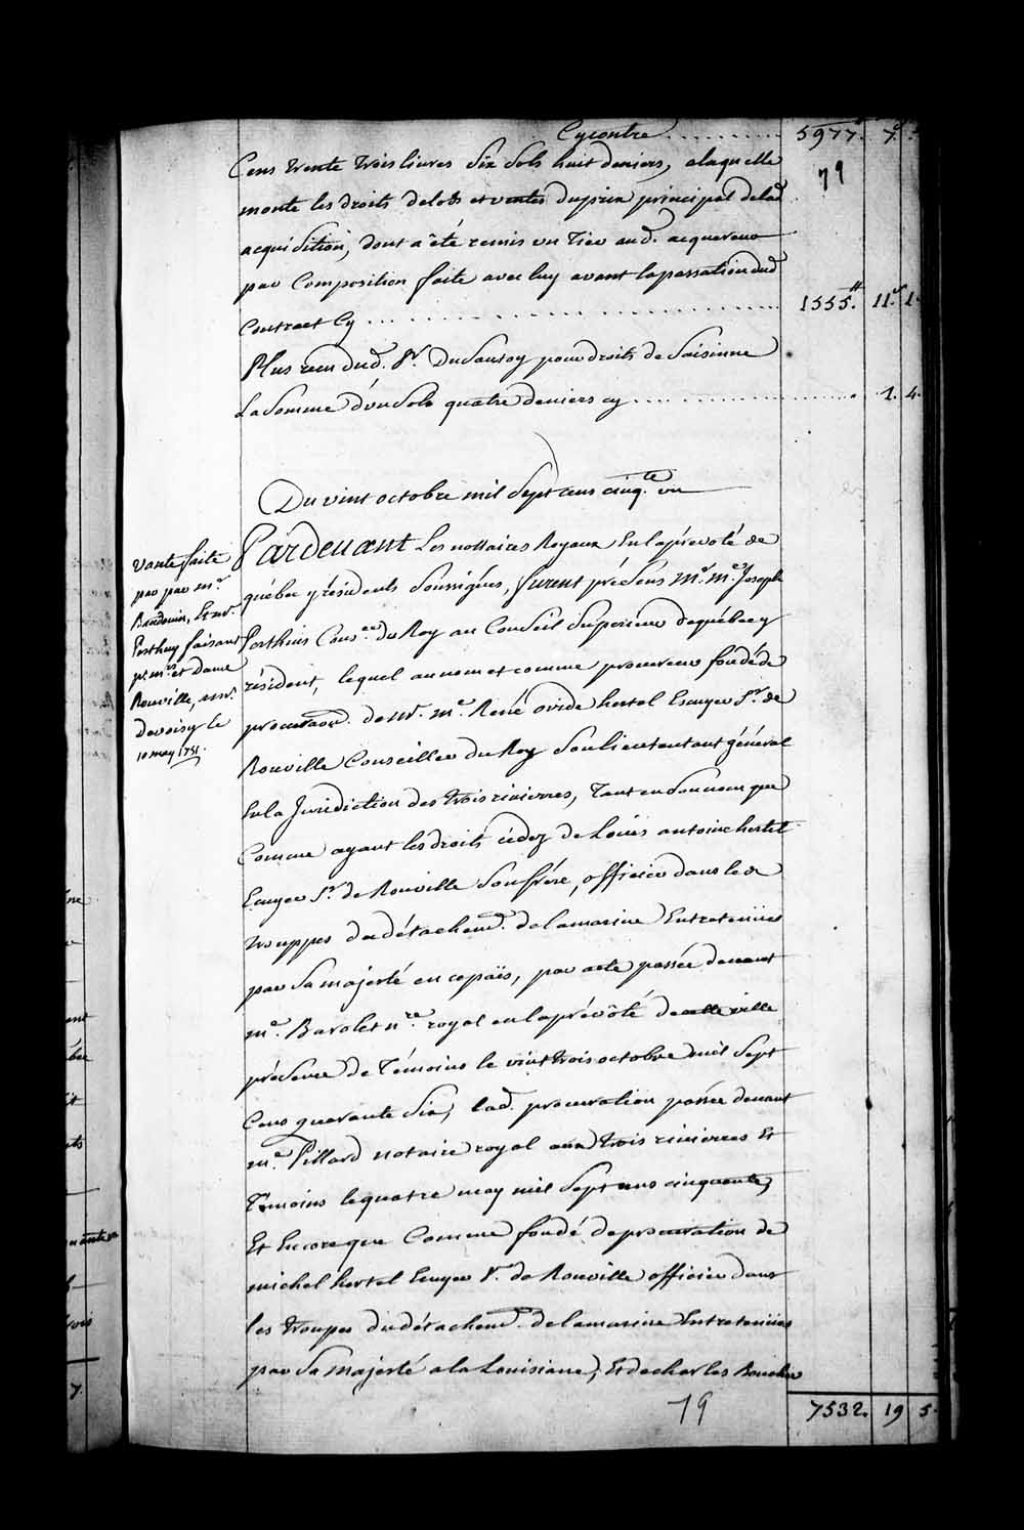 Cycontre . . . . . . . . 5977. 7.s
79
Cens trente trois livres Six Sols huit deniers, alaquelle
monte les droits delots et ventes duprix principal delad.
acquisition, dont a été remis un Tier aud. acquereur
par Composition faite avec luy avant lapassation dud.
Contract Cy . . . . . . . . . . . . . . . . . 1555.tt 11.s 1.
Plus reçu dud. Sr. DuSausoy pour droits de Saisinne
La Somme d'un Sols quatre deniers cy . . . . . . . . . . . . . 1. 4.
Du vint octobre mil Sept cens cinq.te un
vante faite
par par mr.
Baudouin, Et mr.
Perthuy faisant
pr. mrs et Dame
Rouville, a mr.
devoisy le
10 may 1751.
Pardevant Les nottaires Royaux En laprevoté de
québec y résidents Soussignes, furent présens Mr. Me. Joseph
Perthuis Conser. du Roy au Conseil Superieur dequébec y
résident, lequel au nom et comme procureur fondé de
procuraon. de Mr. Me. René ovide hertel Escuyer Sr. de
Rouville Conseiller du Roy Son lieutentant général
En la Juridiction des trois rivierres, Tant en Son nom que
Comme ayant les droits cédez de Louis antoine hertel
Ecuyer Sr. de Rouville Son frére, officier dans les
trouppes du détachemt. de lamarine Entretenües
par Sa majesté en cepaïs, par acte passée devant
me. Barolet nre. royal en laprévôté de cette ville
présence de Témoins le vint trois octobre mil Sept
Cens quarante Six, lad. procuration passée devant
me. Pillard notaire royal aux trois rivierres Et
Temoins le quatre may mil Sept cens cinquante,
Et Encore que Comme fondé de procuration de
michel hertel Ecuyer Sr. de Rouville officier dans
les troupes du détachemt. de lamarine Entretenües
par Sa Majesté a la Louisiane, Et de charles Boucher
7532. 19 5.
79